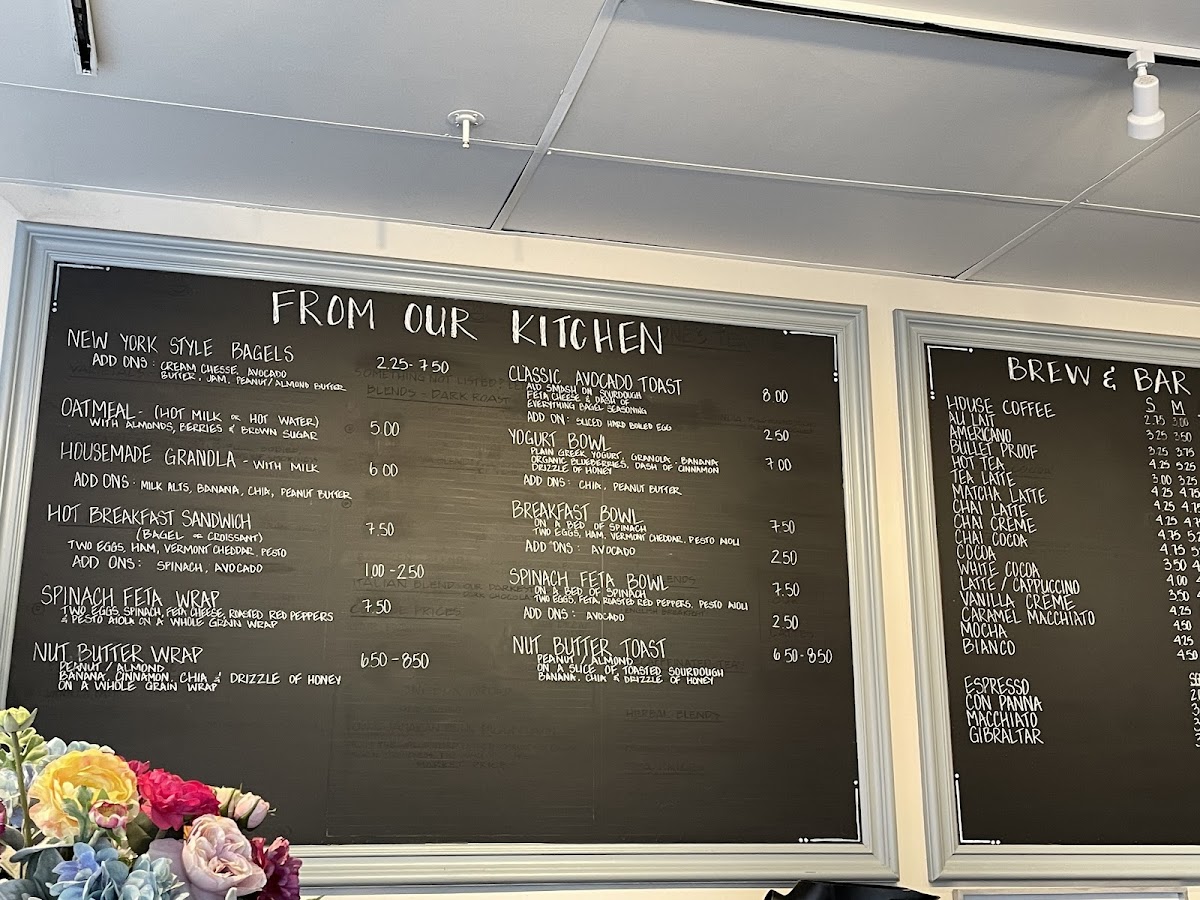 FROM OUR KITCHEN
NEW YORK STYLE BAGELS 2.25-7.50
ADD ONS: CREAM CHESSE, AVOCADO
BUTTER, JAM, PEANUT/ALMOND BUTTER
OATMEAL- (HOT MILK OR HOT WATER) 5.00
WITH ALMONDS, BERRIES & BROWN SUGAR
HOUSEMADE GRANOLA - WITH MILK 6.00
ADD ONS: MILK ALTS, BANANA, CHIA, PEANUT BUTTER
HOT BREAKFAST SANDWICH 7.50
(BAGEL OR CROISSANT)
TWO EGGS, HAM, VERMONT CHEDDAR, PESTO
ADD ONS: SPINACH, AVOCADO 1.00-2.50
SPINACH FETA WRAP 7.50
TWO EGGS, SPINACH, FETA CHEESE, ROASTED RED PEPPERS
& PESTO AIOLA ON A WHOLE GRAIN WRAP
NUT BUTTER WRAP 6.50-8.50
PEANUT / ALMOND
BANANA, CINNAMON, CHIA & DRIZZLE OF HONEY
ON A WHOLE GRAIN WRAP
CLASSIC AVOCADO TOAST 8.00
AVO SMASH ON SOURDOUGH
FETA CHEESE & DASH OF
EVERYTHING BAGEL SEASONING
ADD ON: SLICED HARD BOILED EGG 2.50
YOGURT BOWL 7.00
PLAIN GREEK YOGURT, GRANOLA, BANANA
ORGANIC BLUEBERRIES, DASH OF CINNAMON
DRIZZLE OF HONEY
ADD ONS: CHIA, PEANUT BUTTER
BREAKFAST BOWL 7.50
ON A BED OF SPINACH
TWO EGGS, HAM, VERMONT CHEDDAR, PESTO AIOLI
ADD ONS: AVOCADO 2.50
SPINACH FETA BOWL 7.50
ON A BED OF SPINACH
TWO EGGS, FETA, ROASTED RED PEPPERS, PESTO AIOLI
ADD ONS: AVOCADO 2.50
NUT BUTTER TOAST 6.50-8.50
PEANUT / ALMOND
ON A SLICE OF TOASTED SOURDOUGH
BANANA, CHIA & DRIZZLE OF HONEY
BREW & BAR
S M
HOUSE COFFEE 2.75 3.00
AU LAIT 3.25 3.50
AMERICANO 3.25 3.75
BULLET PROOF 4.25 5.25
HOT TEA 3.00 3.25
TEA LATTE 4.25 4.75
MATCHA LATTE
CHAI LATTE
CHAI CREME
CHAI COCOA
COCOA
WHITE COCOA
LATTE / CAPPUCCINO
VANILLA CREME
CARAMEL MACCHIATO
MOCHA
BIANCO
ESPRESSO
CON PANNA
MACCHIATO
GIBRALTAR